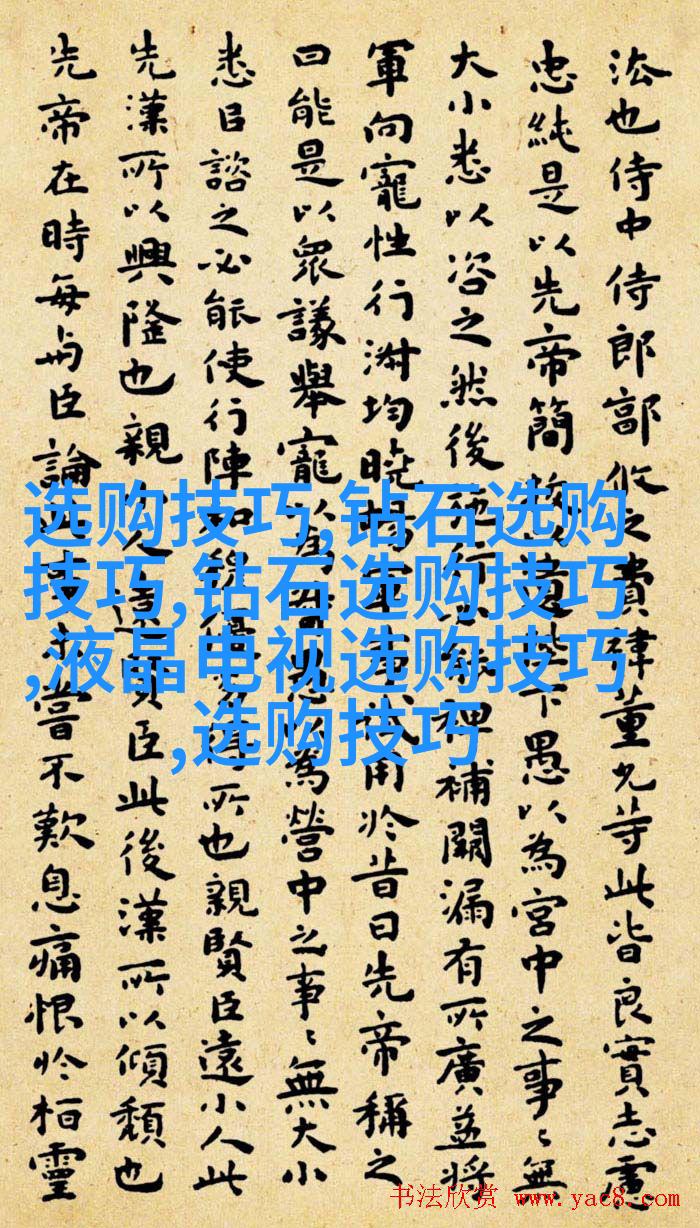 法也侍中侍郎郭攸之費禕董允等此皆良實志慮
忠純是以先帝簡拔以遺陛下愚以為宮中之事〻無
大小悉以咨之然後施行必能裨補闕漏有所廣益將
軍向寵性行淑均曉暢軍事試用於昔日先帝稱之
曰能是以眾議舉寵以為督愚以為營中之事〻無大小
悉以諮之必能使行陣和穆優劣得所也親賢臣遠小人此
先漢所以興隆也親小人遠賢臣此後漢所以傾頹也
先帝在時每與臣論此事未嘗不歎息痛恨於桓靈
选购技巧,钻石选购
技巧,钻石选购技巧
,液晶电视选购技巧
,选购技巧
书法欣赏 www.yac8.com